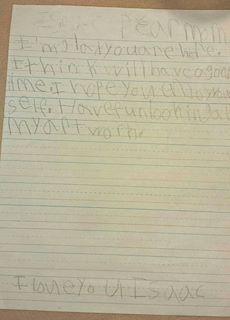 Dear mom
I'm glad you are here.
I think will have a good
time. I hope you enjoy your
self. Have fun looking at
my art work.
I love you Isaac